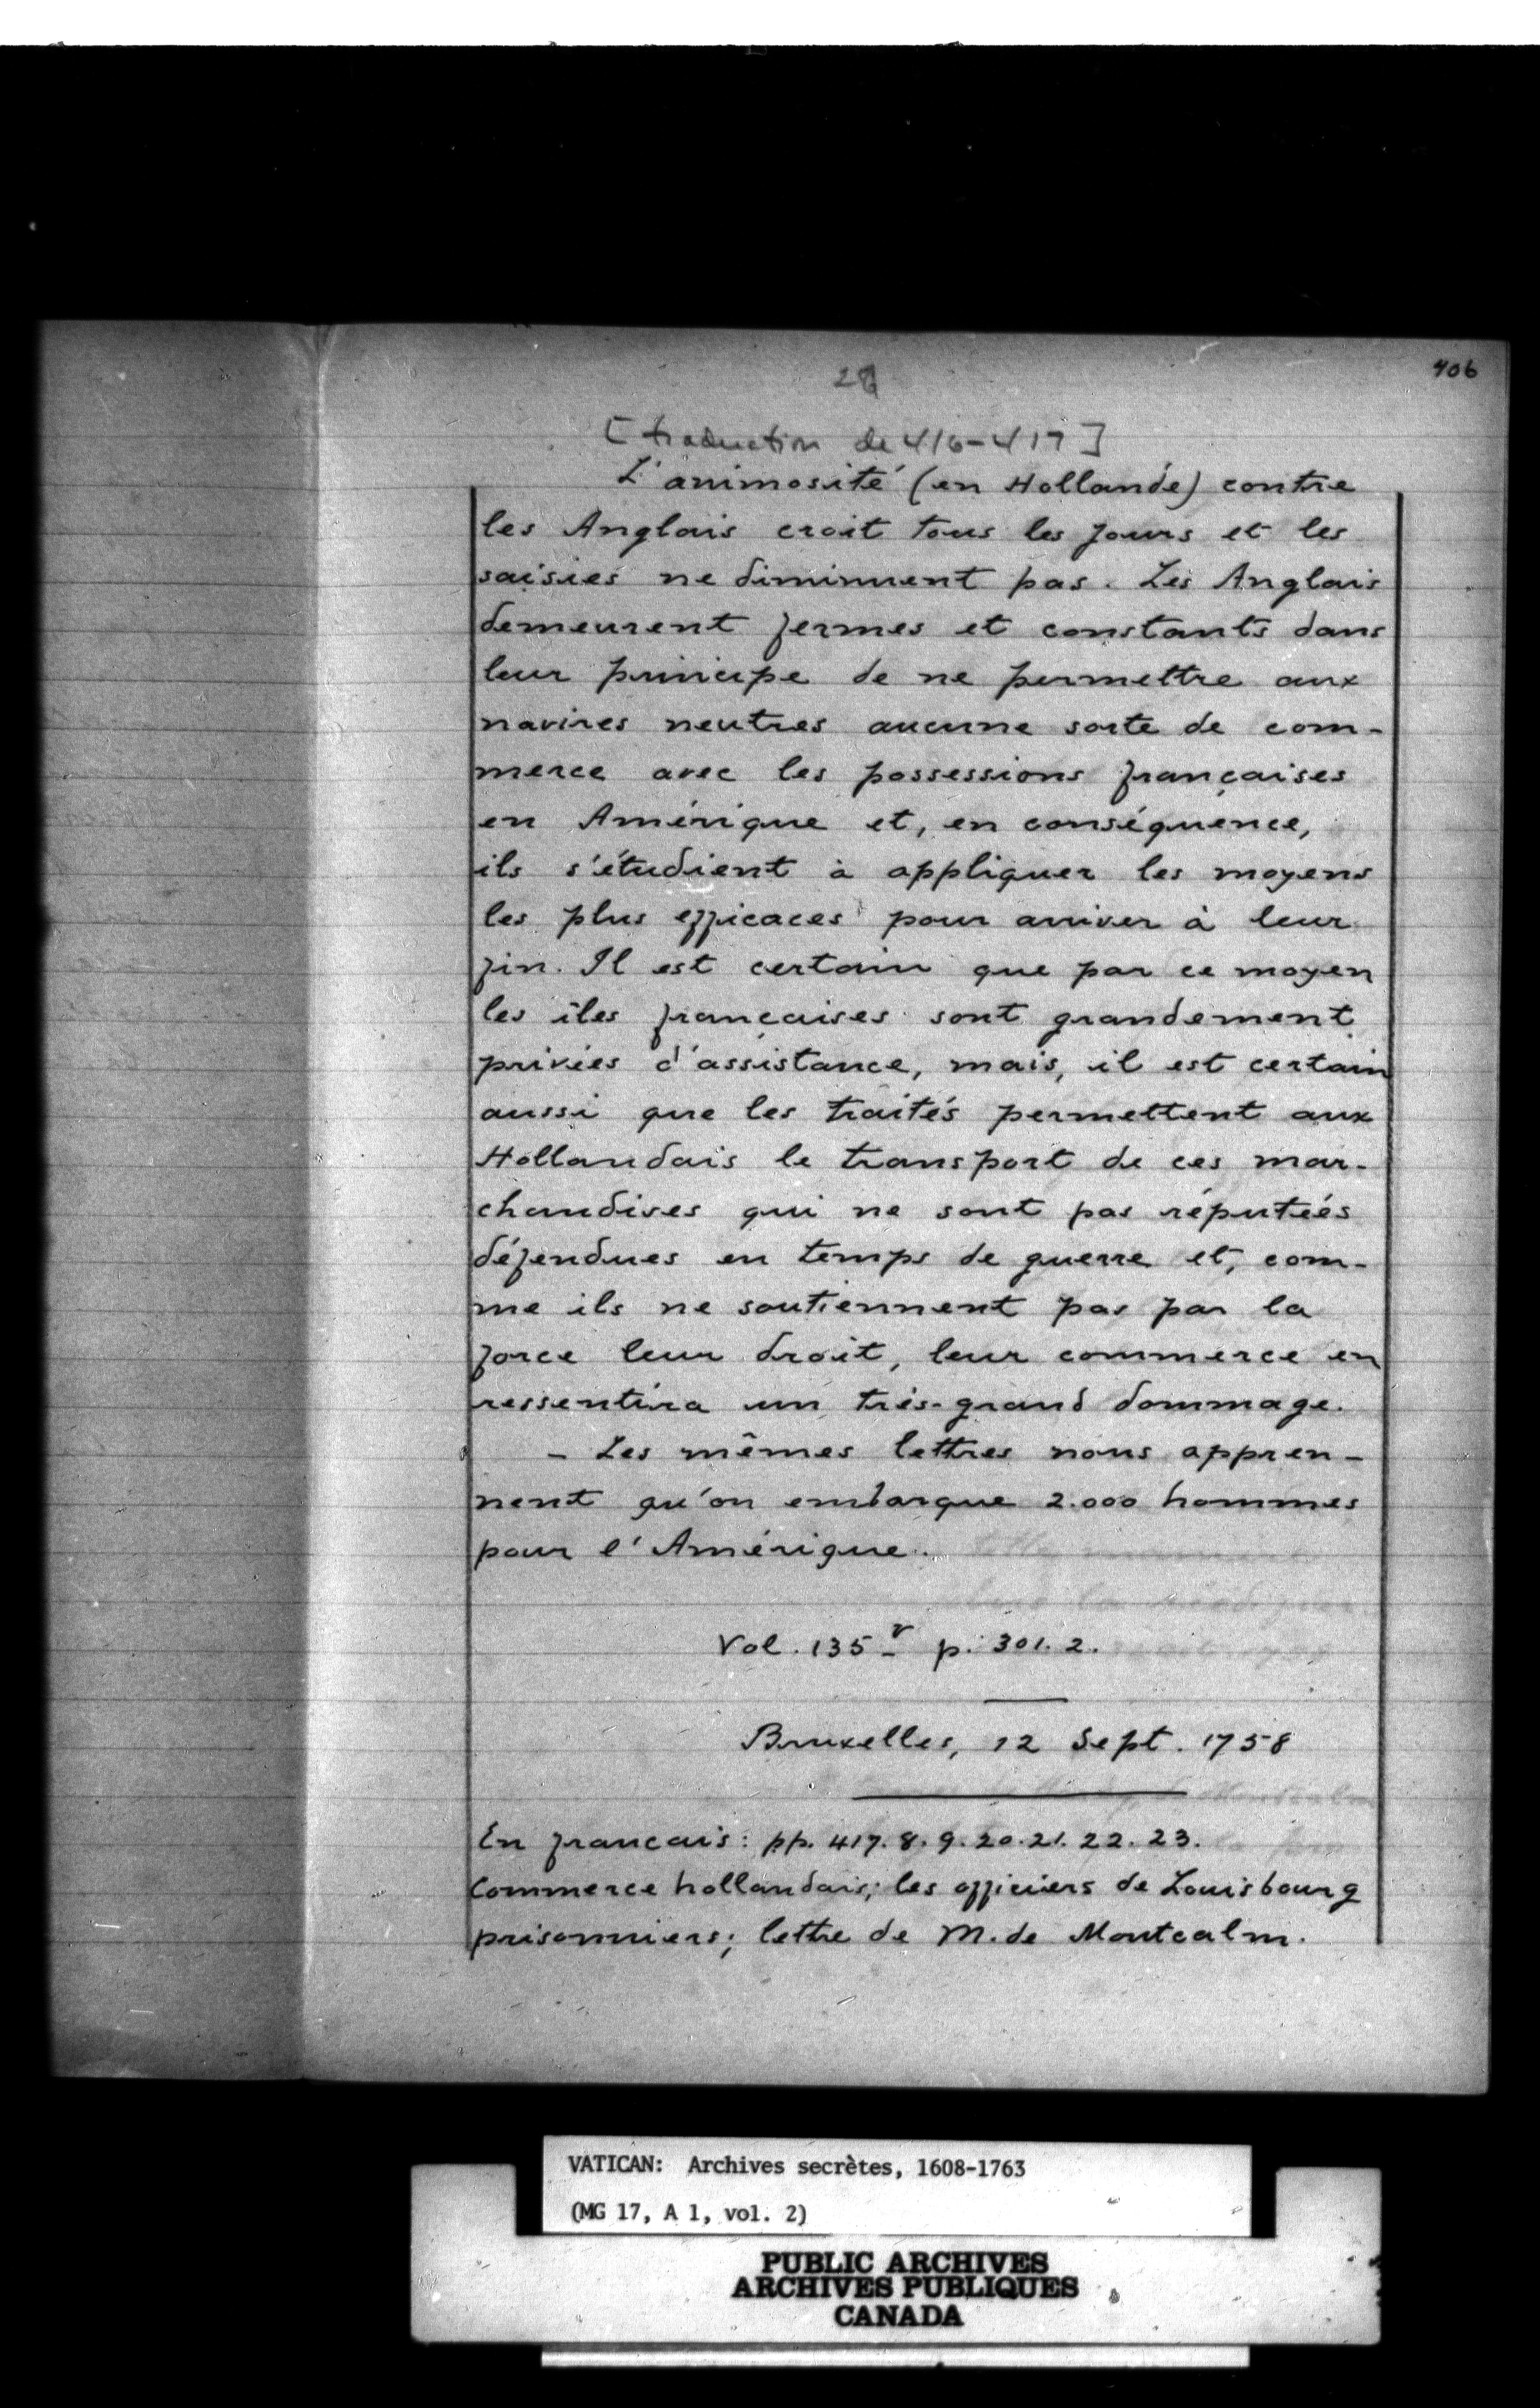 406
28
[traduction de 416-417]
L'animosité (en Hollande) contre
les Anglais croit tous les jours et les
saisies ne diminuent pas. Les Anglais
demeurent fermes et constants dans
leur principe de ne permettre aux
navires neutres aucune sorte de com-
merce avec les possessions françaises
en Amérique et, en conséquence,
ils s'étudient à appliquer les moyens
les plus efficaces pour arriver à leur
fin. Il est certain que par ce moyen
les îles françaises sont grandement
privées d'assistance, mais, il est certain
aussi que les traités permettent aux
Hollandais le transport de ces mar-
chandises qui ne sont pas réputées
défendues en temps de guerre et, com-
me ils ne soutiennent pas par la
force leur droit, leur commerce en
ressentira un très-grand dommage.
- Les mêmes lettres nous appren-
nent qu'on embarque 2.000 hommes
pour l'Amérique.
Vol. 135 v p. 301. 2.
Bruxelles, 12 Sept. 1758
En français: pp. 417. 8. 9. 20. 21. 22. 23.
Commerce hollandais; les officiers de Louisbourg
prisonniers; lettre de M. de Montcalm.
VATICAN: Archives secrètes, 1608-1763
(MG 17, A 1, vol. 2)
PUBLIC ARCHIVES
ARCHIVES PUBLIQUES
CANADA